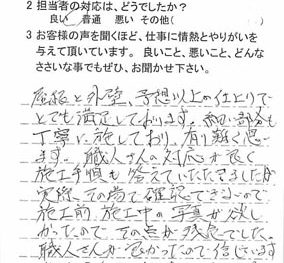 2 担当者の対応は、どうでしたか?
良い 普通 悪い その他(
3 お客様の声を聞くほど、仕事に情熱とやりがいを
与えて頂いています。 良いこと、悪いこと、どんな
ささいな事でもぜひ、お聞かせ下さい。
屋根と外壁、予想以上の仕上りで
とても満足しております。細い部分も
丁寧に施しており、有り難く思い
ます。職人さんの対応が良く
施工手順も答えていただきましたが
実際、その場で確認できないので
施工前、施工中の写真が欲し
かったので、その点が残念でした。
職人さんが良かったので信じています